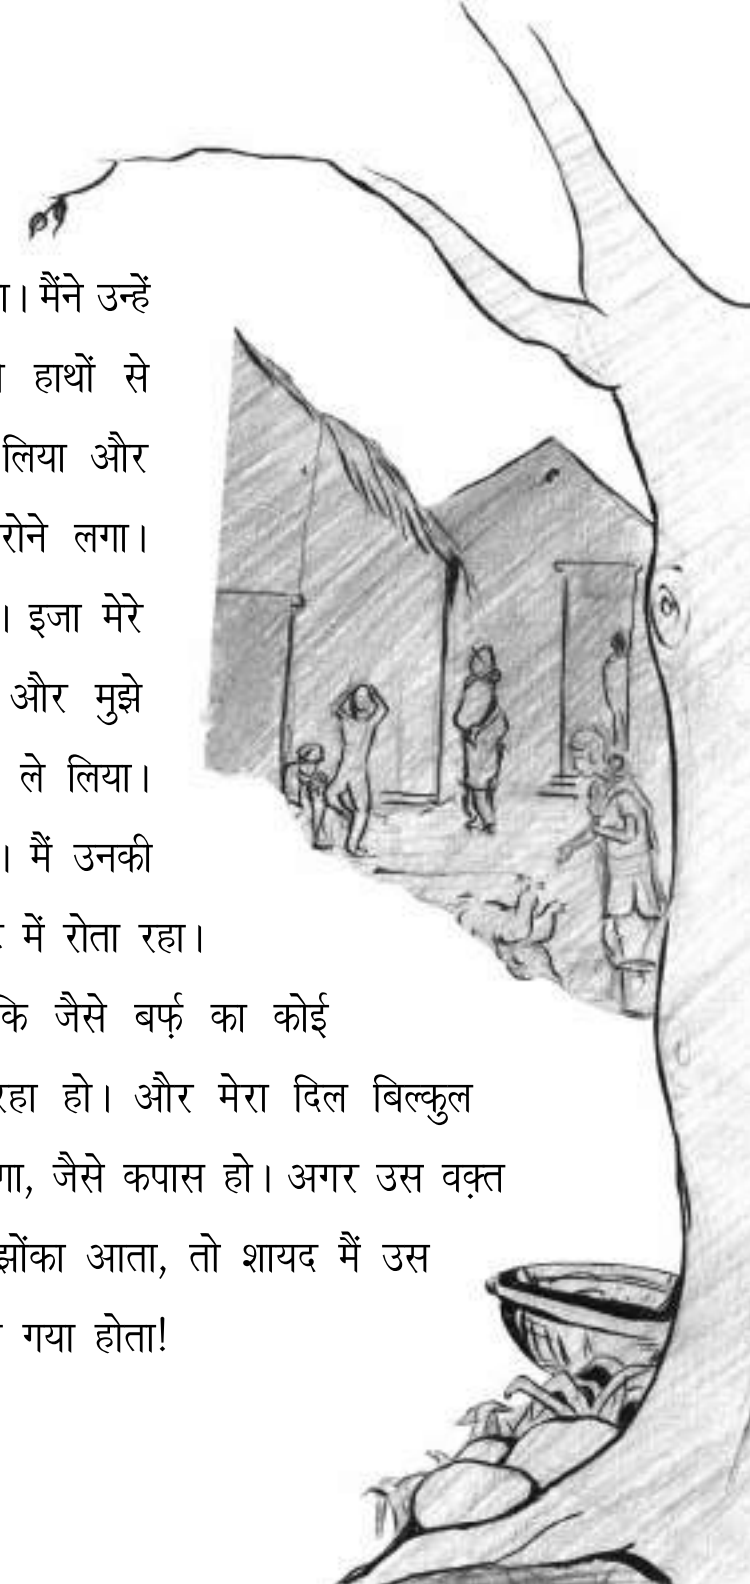 । मैंने उन्हें
हाथों से
लिया और
रोने लगा।
। इजा मेरे
और मुझे
ले लिया।
। मैं उनकी
में रोता रहा।
कि जैसे बर्फ़ का कोई
रहा हो। और मेरा दिल बिल्कुल
जैसे कपास हो। अगर उस वक़्त
झोंका आता, तो शायद मैं उस
गया होता!